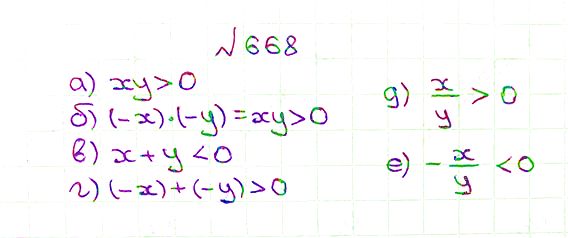 √668
а) xy > 0
б) (-x)·(-y) = xy > 0
в) x + y < 0
г) (-x) + (-y) > 0
д) x/y > 0
е) - x/y < 0